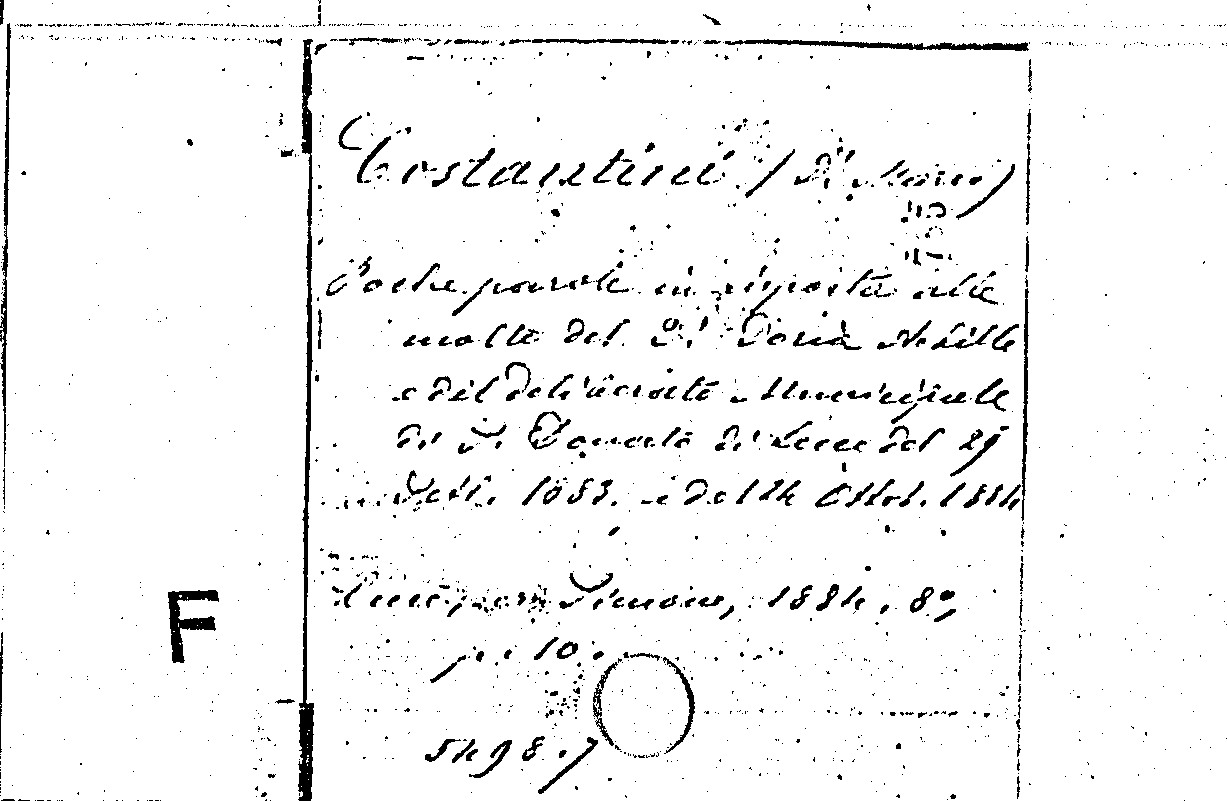 Costantini (Di Marco)
Poche parole in risposta alle
molte del Sr. Doria Achille
e del deliberato Municipale
di S. Donato di Lecce del 29
Sett. 1883. e del 24 Ottob. 1884
Lecce, Simone, 1884. 8º,
p. 10.
F
5498.7